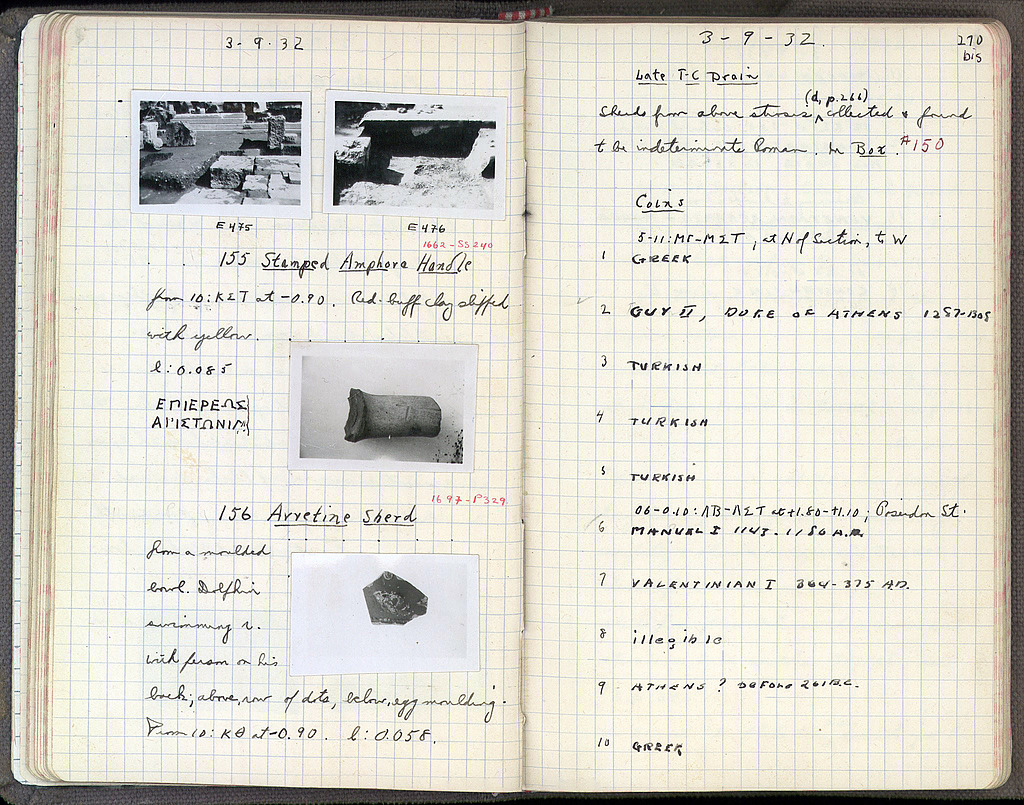 3-9-32
E475
E476
1662-SS240
155 Stamped Amphora Handle
from 10:ΚΣΤ at -0.90. Red-buff clay slipped
with yellow.
l: 0.085
ΕΠΙΕΡΕΩΣ
ΑΡΙΣΤΩΝΙ
1697-P329
156 Arretine Sherd
from a moulded
bowl. Dolphin
swimming r.
with person on his
back; above, row of dots, below, egg moulding.
From 10: ΚΘ at -0.90. l: 0.058.
3-9-32.
270
bis
Late T-C Drain
(d, p.266)
Sherds from above strosis, collected & found
to be indeterminate Roman. In Box. #150
Coins
5-11: ΜΓ-ΜΣΤ, at N of Section, to W
1 GREEK
2 GUY II, DUKE OF ATHENS 1287-1308
3 TURKISH
4 TURKISH
5 TURKISH
06-010: ΛΒ-ΛΣΤ at +1.80-+1.10; Poseidon St.
6 MANUEL I 1143-1180 A.D.
7 VALENTINIAN I 364-375 A.D.
8 illegible
9 ATHENS ? BEFORE 261 B.C.
10 GREEK